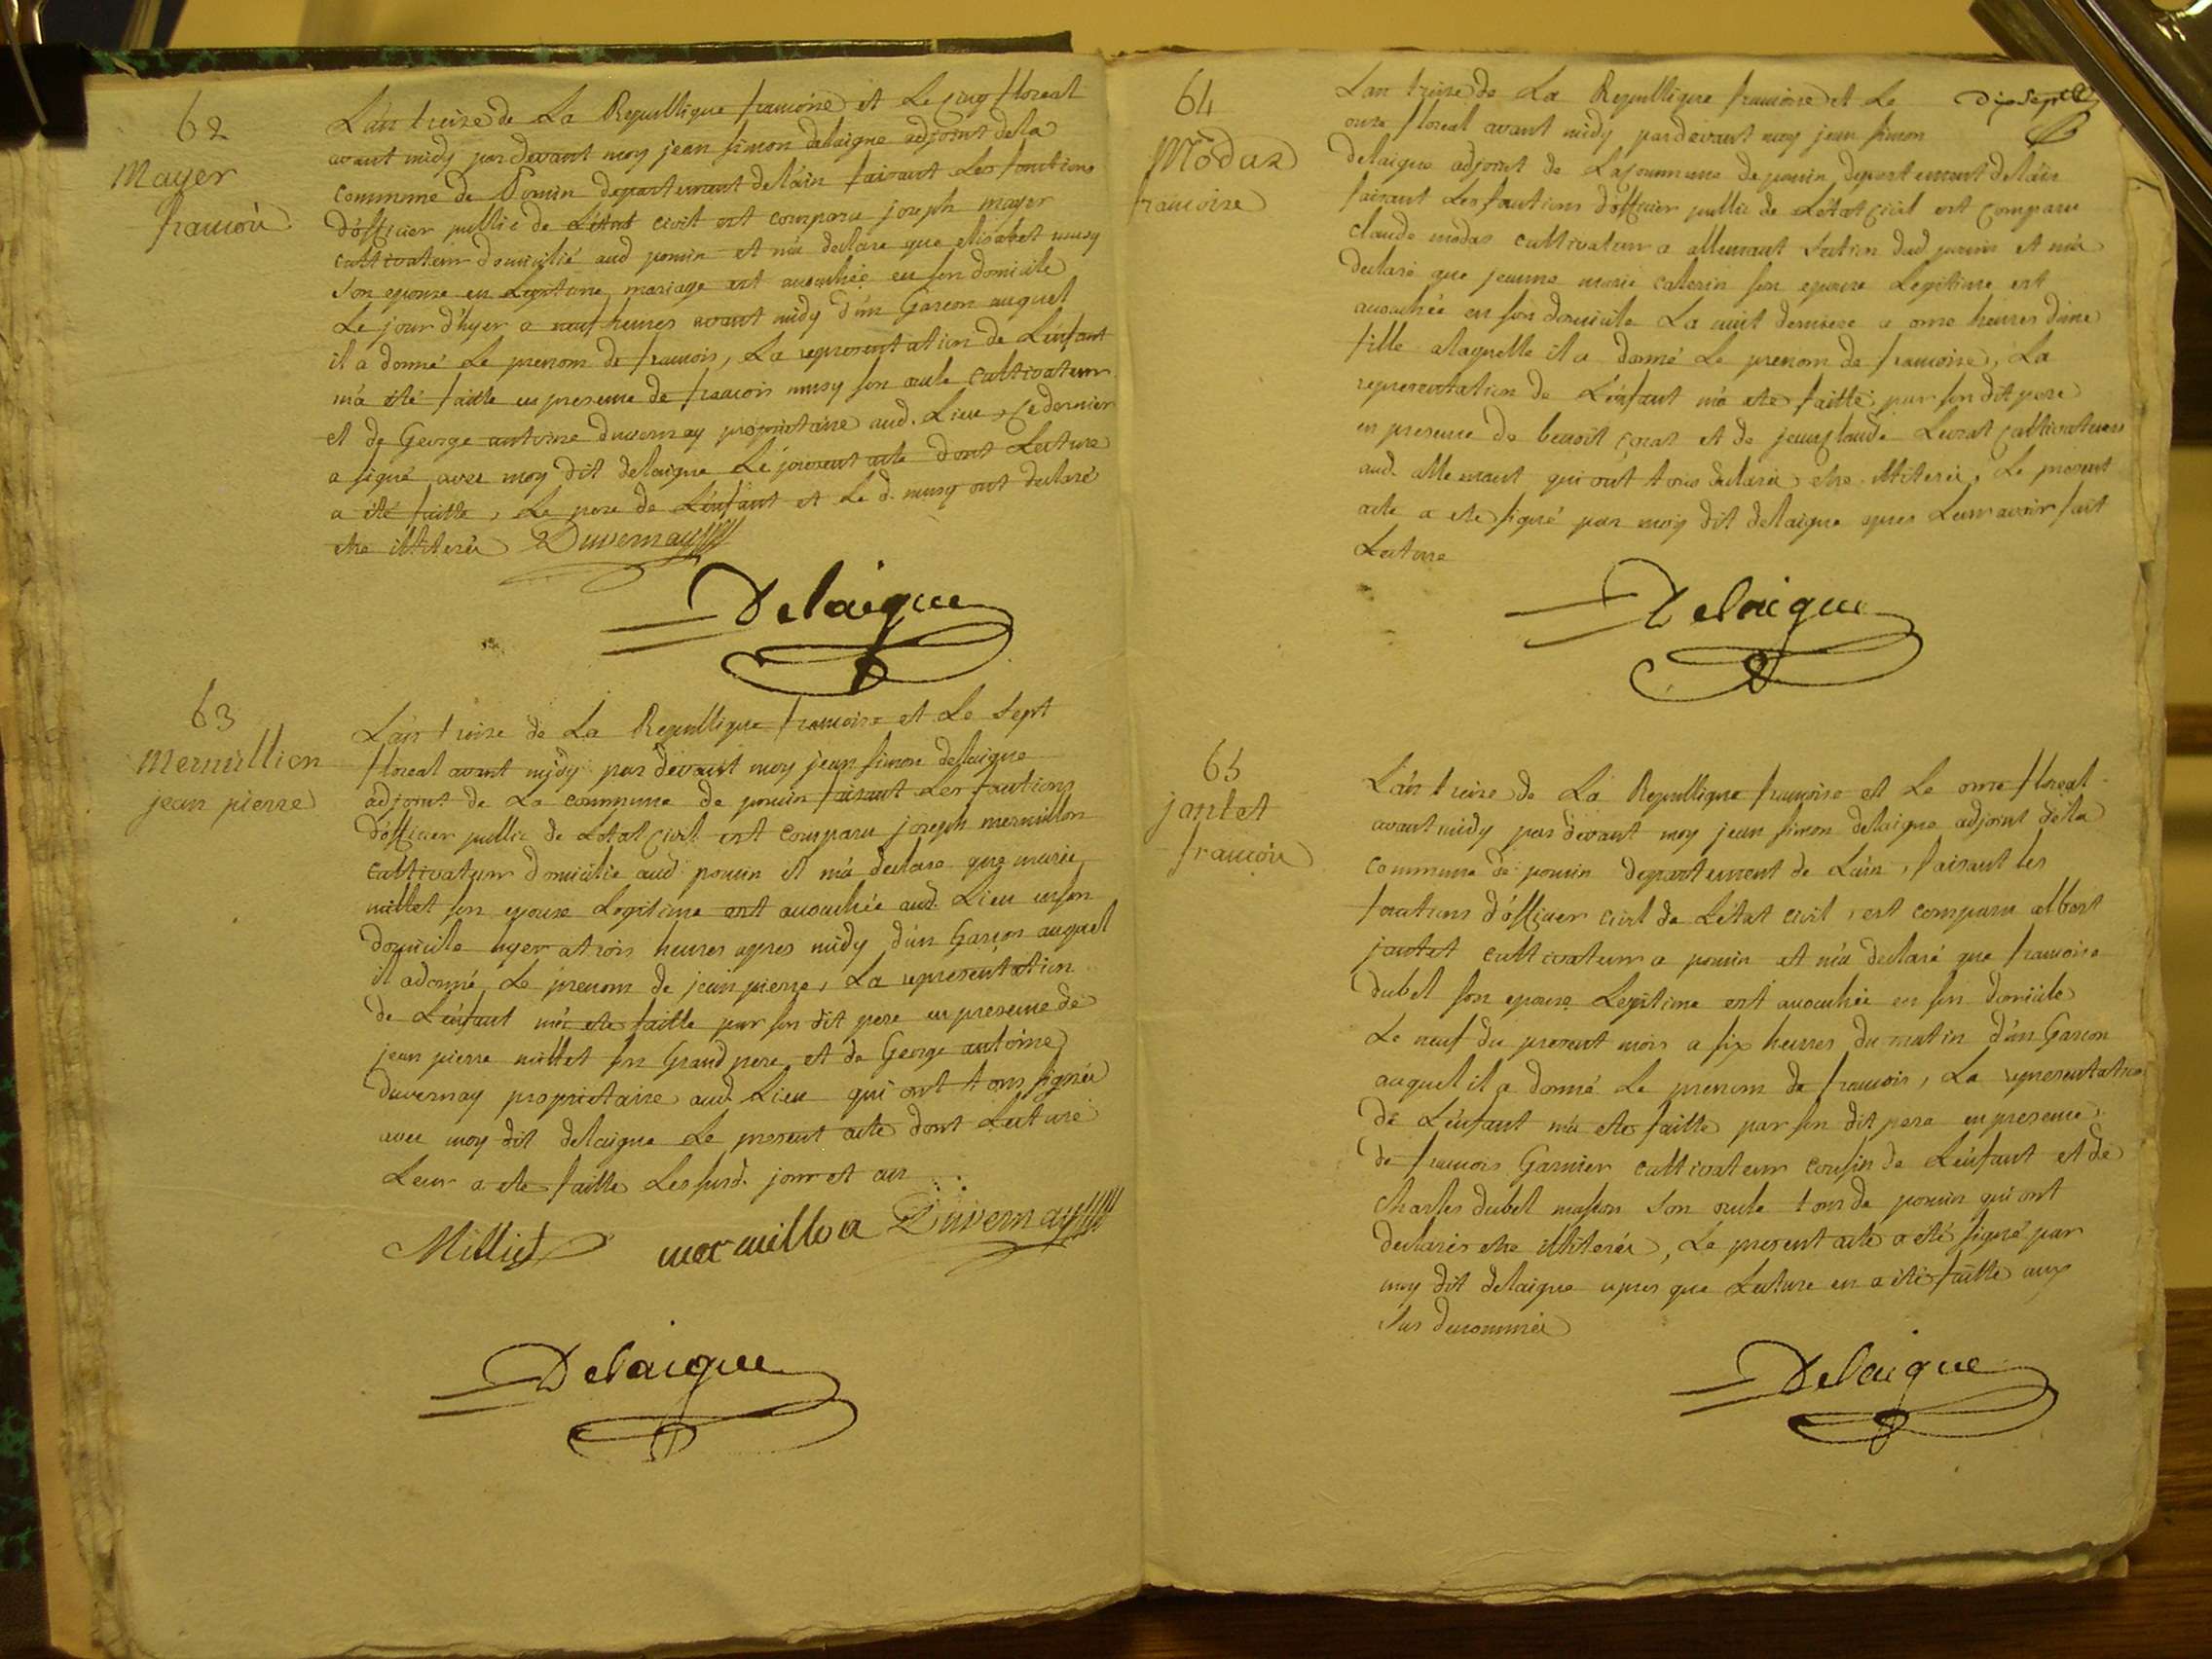 62
Mayer
francois
L'an treize de La Republique francoise et Le cinq floreal
avant midy par devant moy jean simon delaigne adjoint de la
commune de Poncin departement de l'ain faisant Les fonctions
d'officier public de L'état civil est comparu joseph mayer
cultivateur domicilié aud poncin et m'a declare que elisabet musy
son epouse en Legitime mariage est accouchée en son domicile
Le jour d'hyer a neuf heures avant midy d'un Garcon auquel
il a donné Le prenom de francois, La representation de L'enfant
m'a été faitte en presence de francois musy son oncle cultivateur
et de George antoine duvernay proprietaire aud. Lieu, Ce dernier
a signé avec moy dit delaigne Le present acte dont Lecture
a été faitte, Le pere de L'enfant et Le d. musy ont declaré
etre illiterés Duvernay
Delaigue
63
Mermillion
jean pierre
L'an treize de La Republique francoise et Le sept
floreal avant midy par devant moy jean simon delaigne
adjoint de La commune de poncin faisant Les fonctions
d'officier public de L'etat Civil est comparu joseph mermillon
cultivateur domicilié aud poncin et m'a declare que marie
millet son epouse Legitime est accouchée aud. Lieu en son
domicile hyer a trois heures apres midy d'un Garcon auquel
il a donné Le prenom de jean pierre, La representation
de L'enfant m'a ete faitte par son dit pere en presence de
jean pierre millet son Grand pere et de George antoine
duvernay proprietaire aud. Lieu qui ont tous signés
avec moy dit delaigne Le present acte dont Lecture
Leur a ete faitte Les susd. jour et an
Milliet mermillon Duvernay
Delaigue
Dix Sept
64
Modas
francoise
L'an treize de La Republique francoise et Le
onze floreal avant midy par devant moy jean simon
delaigne adjoint de La Commune de poncin departement de l'ain
faisant Les fonctions d'officier public de L'etat Civil est comparu
claude modas cultivateur a allemant section dud poncin et m'a
declaré que jeanne marie caterin son epouse Legitime est
accouchée en son domicile La nuit derniere a onze heures d'une
fille a laquelle il a donné Le prenom de francoise, La
representation de L'enfant m'a ete faitte par son dit pere
en presence de benoit Corat et de jean Claude Levrat Cultivateurs
aud. allemant qui ont tous declarés etre illiterés, Le present
acte a ete signé par moy dit delaigne apres Leur avoir fait
Lecture
Delaigue
65
jantet
francois
L'an treize de La Republique francoise et Le onze floreal
avant midy par devant moy jean simon delaigne adjoint de la
commune de poncin departement de L'ain, faisant les
fonctions d'officier civil de L'état civil, est comparu albert
jantet cultivateur a poncin et m'a declaré que francoise
dubel son epouse Legitime est accouchée en son domicile
Le neuf du present mois a six heures du matin d'un Garcon
auquel il a donné Le prenom de francois, La representation
de L'enfant m'a ete faitte par son dit pere en presence
de francois Garnier cultivateur cousin de L'enfant et de
charles dubel masson son oncle tous de poncin qui ont
declarés etre illiterés, Le present acte a été signé par
moy dit delaigne apres que Lecture en a été faitte aux
sus denommés
Delaigue